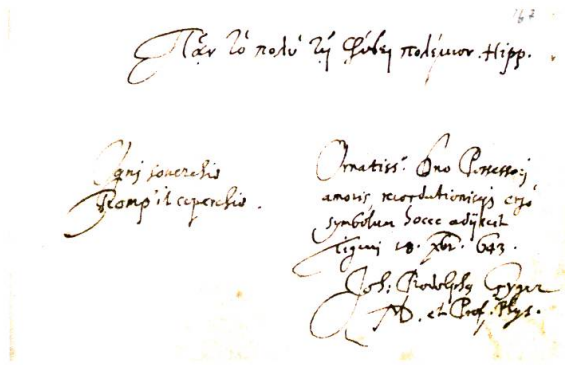 167
Πᾶν τὸ πολὺ τῇ φύσει πολέμιον. Hipp.
Ogni soverchio
Romp' il coperchio.
Ornatiss.° Dno Possessorj
amoris, recordationisq; ergo
symbolum hocce adjicit
Tiguri 18. Xbr. 643.
Joh: Rodolphq Gyger
M. et Prof. Phys.